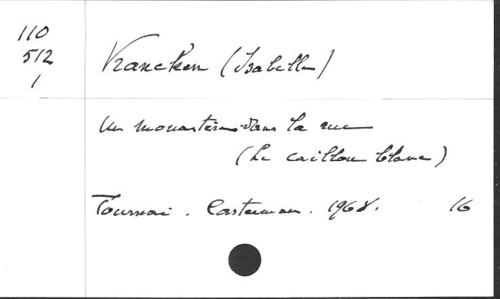 110
512
1
Vrancken (Isabelle)
Un monastère dans la rue
(Le caillou blanc)
Tournai. Casterman. 1968. 16